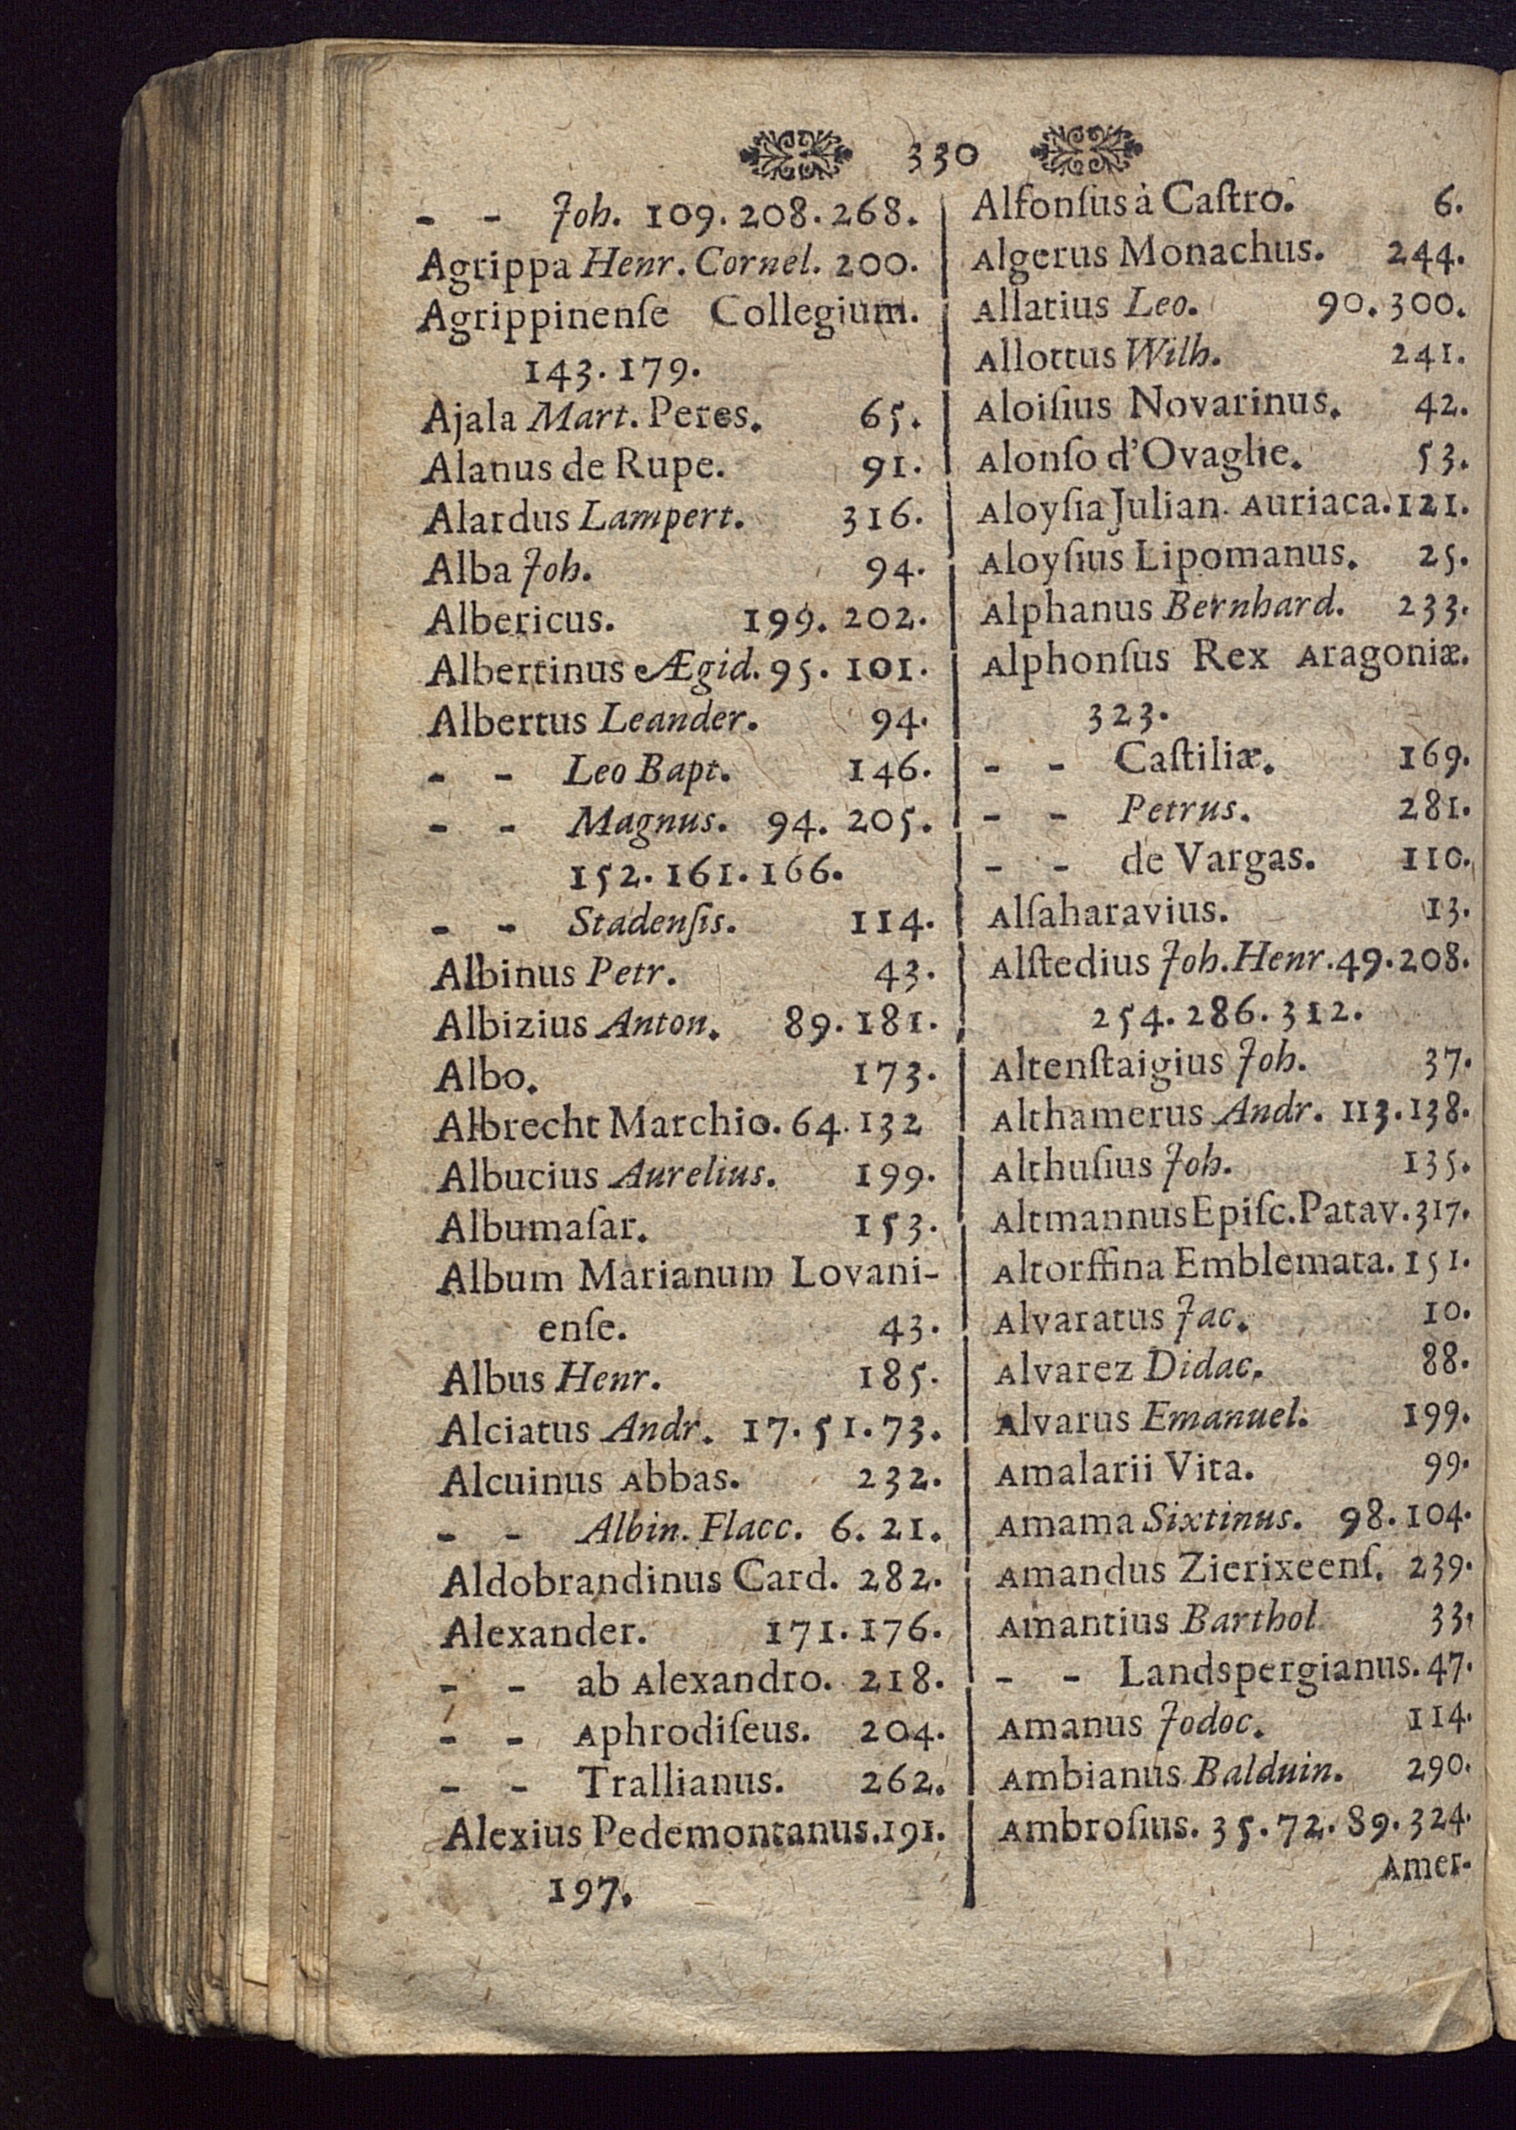 330
- - Joh. 109. 208. 268.
Agrippa Henr. Cornel. 200.
Agrippinenſe Collegium.
143. 179.
Ajala Mart. Peres. 65.
Alanus de Rupe. 91.
Alardus Lampert. 316.
Alba Joh. 94.
Albericus. 199. 202.
Albertinus Ægid. 95. 101.
Albertus Leander. 94.
- - Leo Bapt. 146.
- - Magnus. 94. 205.
152. 161. 166.
- - Stadenſis. 114.
Albinus Petr. 43.
Albizius Anton. 89. 181.
Albo. 173.
Albrecht Marchio. 64. 132
Albucius Aurelius. 199.
Albumaſar. 153.
Album Marianum Lovani-
enſe. 43.
Albus Henr. 185.
Alciatus Andr. 17. 51. 73.
Alcuinus Abbas. 232.
- - Albin. Flacc. 6. 21.
Aldobrandinus Card. 282.
Alexander. 171. 176.
- - ab Alexandro. 218.
- - Aphrodiſeus. 204.
- - Trallianus. 262.
Alexius Pedemontanus. 191.
197.
Alfonſus à Caſtro. 6.
Algerus Monachus. 244.
Allatius Leo. 90. 300.
Allottus Wilh. 241.
Aloiſius Novarinus. 42.
Alonſo d'Ovaglie. 53.
Aloyſia Julian. Auriaca. 121.
Aloyſius Lipomanus. 25.
Alphanus Bernhard. 233.
Alphonſus Rex Aragoniæ.
323.
- - Caſtiliæ. 169.
- - Petrus. 281.
- - de Vargas. 110.
Alſaharavius. 13.
Alſtedius Joh. Henr. 49. 208.
254. 286. 312.
Altenſtaigius Joh. 37.
Althamerus Andr. 113. 138.
Althuſius Joh. 135.
Altmannus Epiſc. Patav. 317.
Altorffina Emblemata. 151.
Alvaratus Jac. 10.
Alvarez Didac. 88.
Alvarus Emanuel. 199.
Amalarii Vita. 99.
Amama Sixtinus. 98. 104.
Amandus Zierixeenſ. 239.
Amantius Barthol 33.
- - Landspergianus. 47.
Amanus Jodoc. 114.
Ambianus Balduin. 290.
Ambroſius. 35. 72. 89. 324.
Amer-